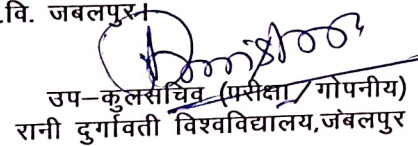 .वि. जबलपुर।
उप–कुलसचिव (परीक्षा/गोपनीय)
रानी दुर्गावती विश्वविद्यालय,जबलपुर